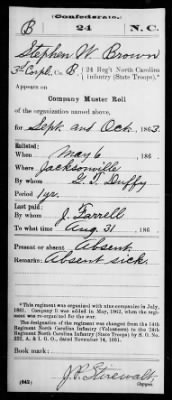 (Confederate.)
B 24 N. C.
Stephen W. Brown
3d Corpl., Co. B, 24 Reg't North Carolina
Infantry (State Troops).*
Appears on
Company Muster Roll
of the organization named above,
for Sept. and Oct., 1863.
Enlisted:
When May 6, 186
Where Jacksonville
By whom G. T. Duffy
Period 1 yr.
Last paid:
By whom J. Farrell
To what time Aug. 31, 186
Present or absent Absent
Remarks: Absent sick.
*This regiment was organized with nine companies in July,
1861. Company B was added in May, 1862, when the regi-
ment was reorganized.
The designation of the regiment was changed from the 14th
Regiment North Carolina Infantry (Volunteers) to the 24th
Regiment North Carolina Infantry (State Troops) by S. O. No.
222, A. & I. G. O., dated November 14, 1861.
Book mark:
(642) J. P. Stirewalt
Copyist.